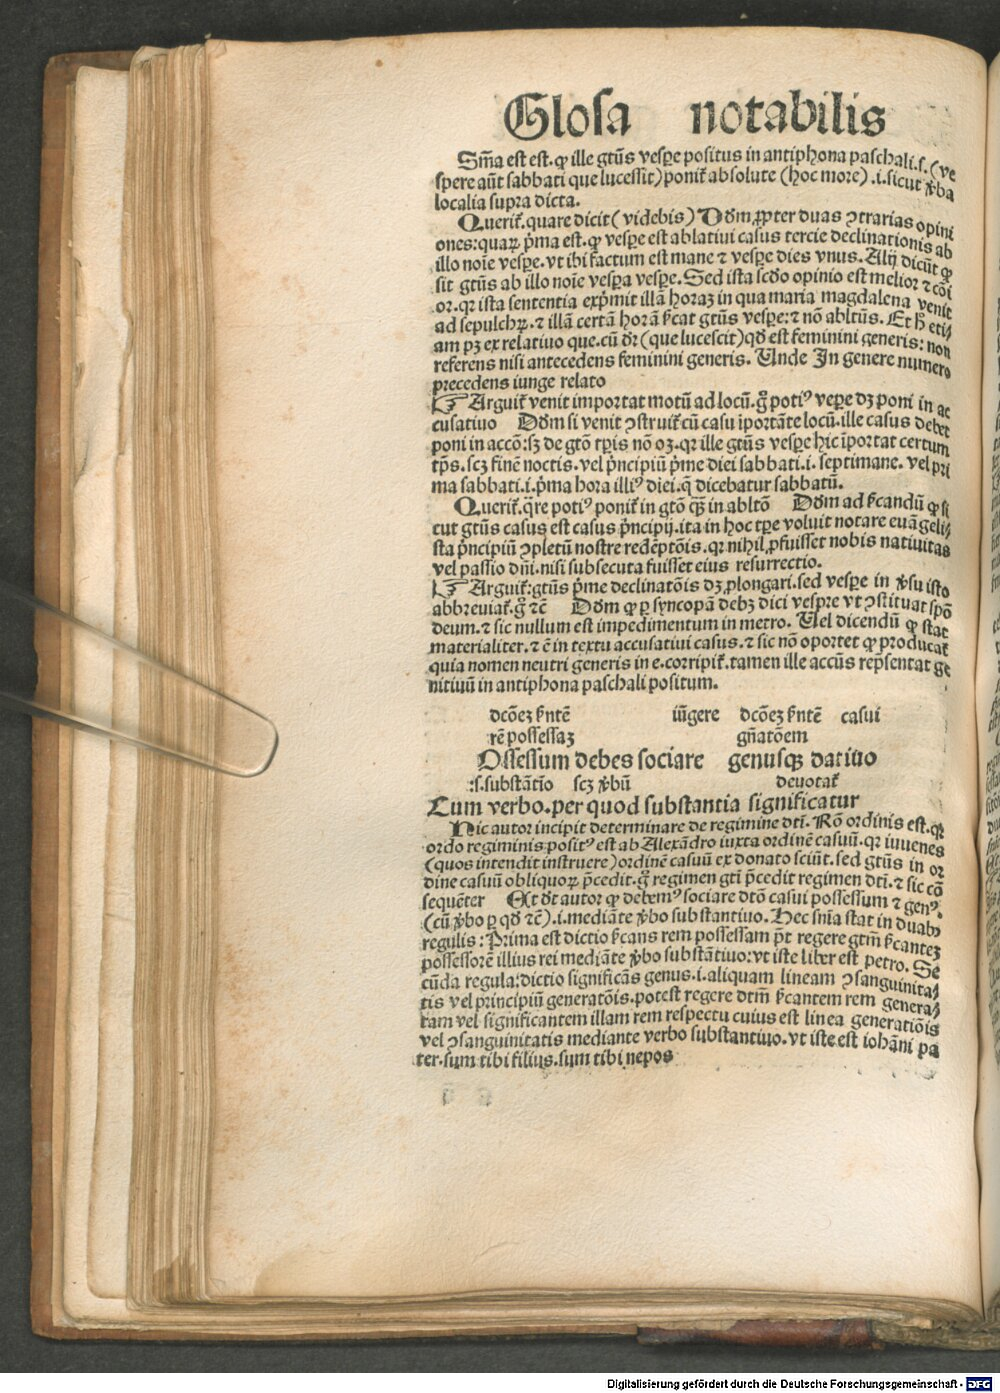 Glosa notabilis
Sm̄a est est. ꝙ ille gtūs vesꝑe positus in antiphona paschali.s.(ve
spere aūt sabbati que lucessit) poniť absolute (hoc more) .i.sicut ꝟba
localia supra dicta.
Queriť. quare dicit (videbis) Dōm ꝓpter duas ↄtrarias opini
ones: quaꝝ pͥma est. ꝙ vesꝑe est ablatiui casus tercie declinationis ab
illo noīe vesꝑe. vt ibi factum est mane ⁊ vesꝑe dies vnus. Alij dicūt ꝙ
sit gtūs ab illo noīe vesꝑa vesꝑe. Sed ista scd̄o opinio est melior ⁊ cōi
or. qꝛ ista sententia expͥmit illā horaȝ in qua maria magdalena venit
ad sepulchꝝ. ⁊ illā certā horā s̄cat gtūs vesꝑe: ⁊ nō abltūs. Et h̄ eti⸗
am pȝ ex relatiuo que. cū dr̄ (que lucescit) qd̄ est feminini generis: non
referens nisi antecedens feminini generis. Unde In genere numero
precedens iunge relato
☞ Arguiť venit importat motū ad locū. gͦ potiꝰ veꝑe dȝ poni in ac
cusatiuo Dōm si venit ↄstruiť cū casu īportāte locū. ille casus debet
poni in accō: sȝ de gtō tꝑis nō oȝ. qꝛ ille gtūs vesꝑe hic īportat certum
tp̄s. scȝ finē noctis. vel pͥncipiū pͥme diei sabbati .i. septimane. vel pri
ma sabbati .i. pͥma hora illiꝰ diei. q̄ dicebatur sabbatū.
Queriť. q̄re potiꝰ poniť in gtō qȝ̄ in abltō Dōm ad s̄candū ꝙ si
cut gtūs casus est casus pͥncipij. ita in hoc tꝑe voluit notare euāgeli⸗
sta pͥncipiū ↄpletū nostre redēptōis. qꝛ nihil ꝓfuisset nobis natiuitas
vel passio dn̄i. nisi subsecuta fuisset eius resurrectio.
☞ Arguiť: gtūs pͥme declinatōis dȝ ꝓlongari. sed vesꝑe in ꝟsu isto
abbreuiať. gͦ ⁊c̄ Dōm ꝙ ꝑ syncopā debȝ dici vespre vt ↄstituat spō
deum. ⁊ sic nullum est impedimentum in metro. Uel dicendū ꝙ stat
materialiter. ⁊ ē in textu accusatiui casus. ⁊ sic nō oportet ꝙ producať
quia nomen neutri generis in e. corripiť. tamen ille accūs rep̄sentat ge
nitiuū in antiphona paschali positum.
dcōeȝ s̄ntē iūgere dcōeȝ s̄ntē casui
rē possessaȝ gn̄atōem
Ossessum debes sociare genusqȝ datiuo
:s.substātio scȝ ꝟbū deuotať
Cum verbo. per quod substantia significatur
Hic autor incipit determinare de regimine dtī. Rō ordinis est. qꝛ
ordo regiminis positꝰ est ab Alexādro iuxta ordinē casuū. qꝛ iuuenes
(quos intendit instruere) ordinē casuū ex donato sciūt. sed gtūs in or
dine casuū obliquoꝝ p̄cedit. gͦ regimen gtī p̄cedit regimen dtī. ⁊ sic cō
sequēter Et d̄t autor ꝙ debemꝰ sociare dtō casui possessum ⁊ genꝰ.
(cū ꝟbo ꝑ qd̄ ⁊c̄) .i. mediāte ꝟbo substantiuo. Hec sn̄ia stat in duabꝰ
regulis: Prima est dictio s̄cans rem possessam p̄t regere gtm̄ s̄canteȝ
possessorē illius rei mediāte ꝟbo substātiuo: vt iste liber est petro. Se
cūda regula: dictio significās genus .i. aliquam lineam ↄsanguinita⸗
tis vel principiū generatōis. potest regere dtm̄ s̄cantem rem genera⸗
tam vel significantem illam rem respectu cuius est linea generatiōis
vel ↄsanguinitatis mediante verbo substantiuo. vt iste est iohāni pa
ter. sum tibi filius. sum tibi nepos
Digitalisierung gefördert durch die Deutsche Forschungsgemeinschaft - DFG